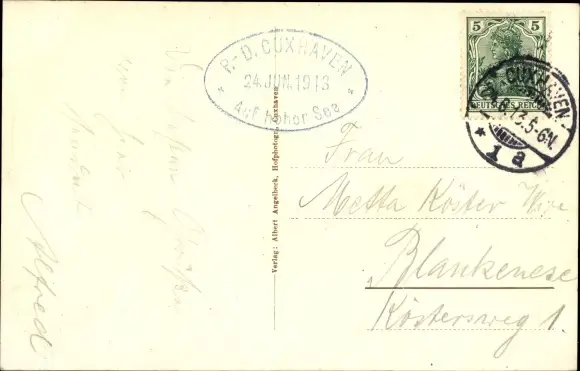 P.-D. CUXHAVEN
24. JUN. 1913
Auf Hoher See
5 5
DEUTSCHES REICH
CUXHAVEN
13.5-6N.
* 1 a
Verlag: Albert Angelbeck, Hofphotogr. Cuxhaven
Alfred
Frau
Metta Köster Wwe
Blankenese
Köstersweg 1.